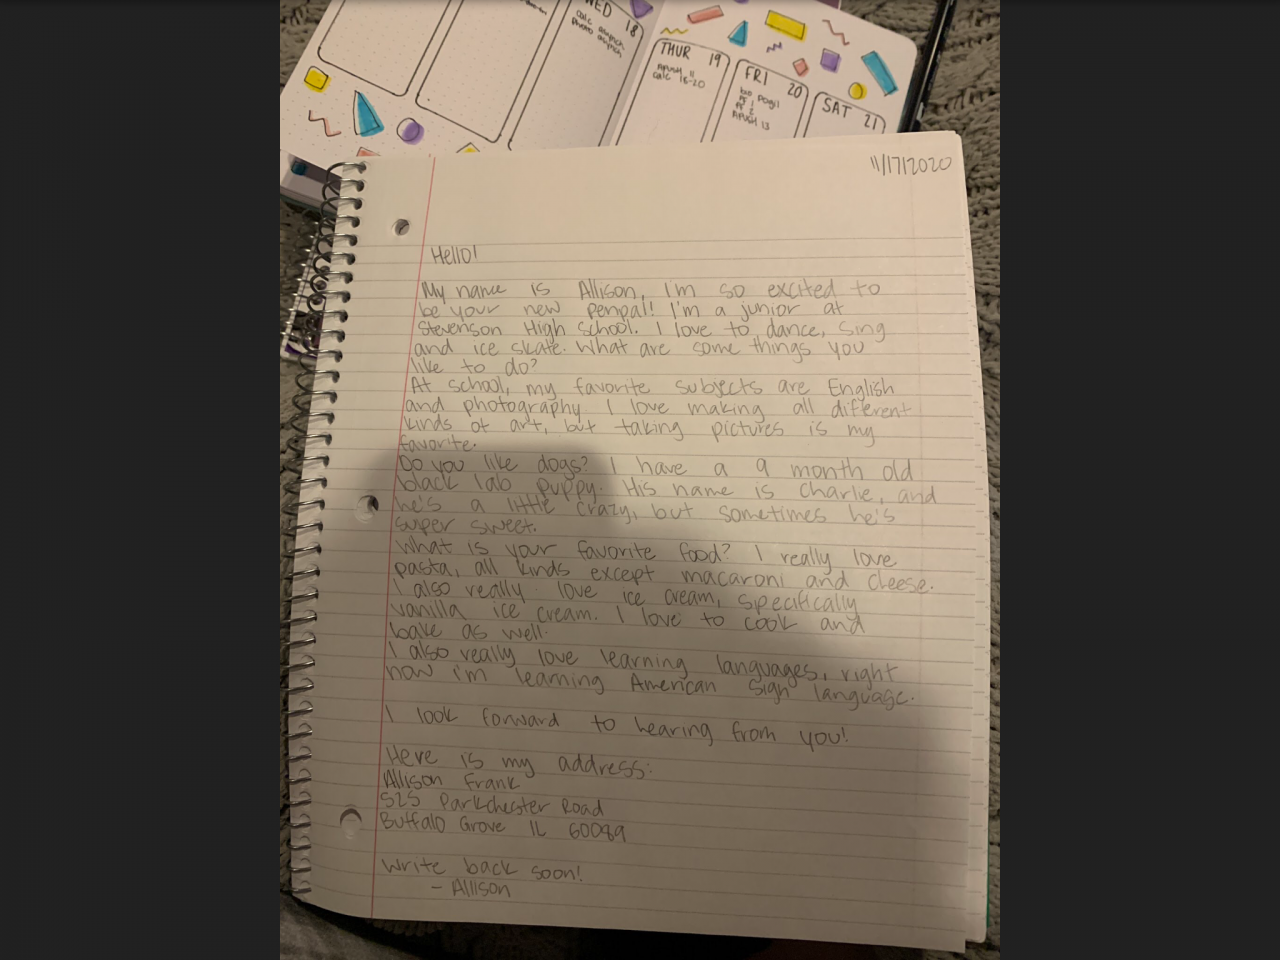 WED 18
calc asynch
photo asynch
THUR 19
APUSH 11
calc 18-20
FRI 20
bio pogil
APUSH 13
SAT 21
11/17/2020
Hello!
My name is Allison, I'm so excited to
be your new penpal! I'm a junior at
Stevenson High School. I love to dance, sing
and ice skate. What are some things you
like to do?
At school, my favorite subjects are English
and photography. I love making all different
kinds of art, but taking pictures is my
favorite.
Do you like dogs? I have a 9 month old
black lab puppy. His name is Charlie, and
he's a little crazy, but sometimes he's
super sweet.
What is your favorite food? I really love
pasta, all kinds except macaroni and cheese.
I also really love ice cream, specifically
vanilla ice cream. I love to cook and
bake as well.
I also really love learning languages, right
now i'm learning American Sign language.
I look forward to hearing from you!
Here is my address:
Allison Frank
525 Parkchester Road
Buffalo Grove IL 60089
Write back soon!
- Allison